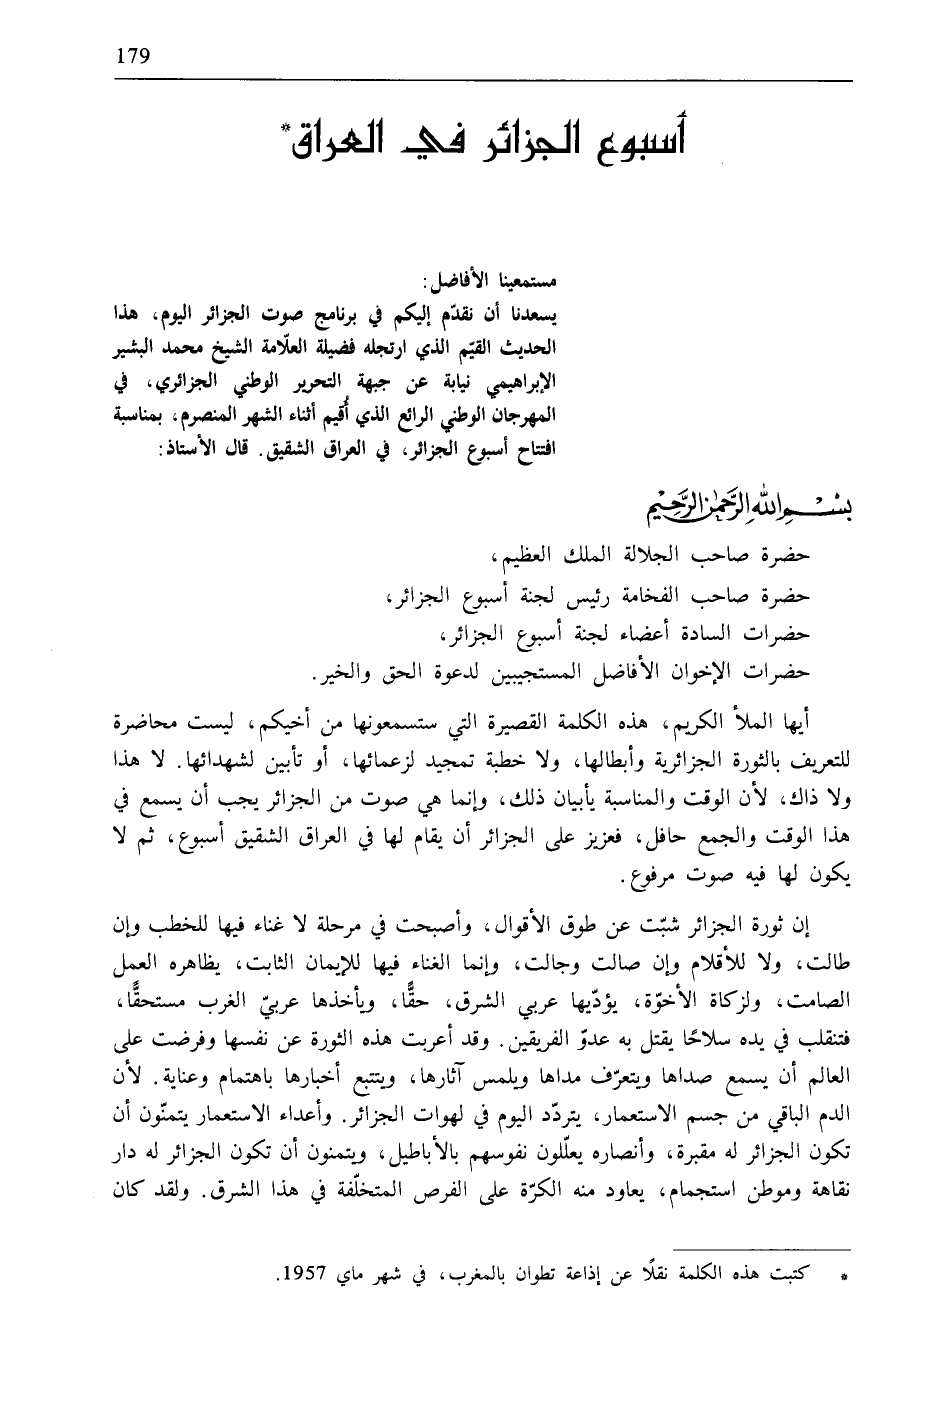 179
أسبوع الجزائر في العراق*
مستمعينا الأفاضل:
يسعدنا أن نقدّم إليكم في برنامج صوت الجزائر اليوم، هذا
الحديث القيّم الذي ارتجله فضيلة العلّامة الشيخ محمد البشير
الإبراهيمي نيابة عن جبهة التحرير الوطني الجزائري، في
المهرجان الوطني الرائع الذي أُقيم أثناء الشهر المنصرم، بمناسبة
افتتاح أسبوع الجزائر، في العراق الشقيق. قال الأستاذ:
بسم الله الرحمن الرحيم
حضرة صاحب الجلالة الملك العظيم،
حضرة صاحب الفخامة رئيس لجنة أسبوع الجزائر،
حضرات السادة أعضاء لجنة أسبوع الجزائر،
حضرات الإخوان الأفاضل المستجيبين لدعوة الحق والخير.
أيها الملأ الكريم، هذه الكلمة القصيرة التي ستسمعونها من أخيكم، ليست محاضرة
للتعريف بالثورة الجزائرية وأبطالها، ولا خطبة تمجيد لزعمائها، أو تأبين لشهدائها. لا هذا
ولا ذاك، لأن الوقت والمناسبة يأبيان ذلك، وإنما هي صوت من الجزائر يجب أن يسمع في
هذا الوقت والجمع حافل، فعزيز على الجزائر أن يقام لها في العراق الشقيق أسبوع، ثم لا
يكون لها فيه صوت مرفوع.
إن ثورة الجزائر شبّت عن طوق الأقوال، وأصبحت في مرحلة لا غناء فيها للخطب وإن
طالت، ولا للأقلام وإن صالت وجالت، وإنما الغناء فيها للإيمان الثابت، يظاهره العمل
الصامت، ولزكاة الأخوّة، يؤدّيها عربي الشرق، حقًّا، ويأخذها عربيّ الغرب مستحقًّا،
فتنقلب في يده سلاحًا يقتل به عدوّ الفريقين. وقد أعربت هذه الثورة عن نفسها وفرضت على
العالم أن يسمع صداها ويتعرّف مداها ويلمس آثارها، ويتتبع أخبارها باهتمام وعناية. لأن
الدم الباقي من جسم الاستعمار، يتردّد اليوم في لهوات الجزائر. وأعداء الاستعمار يتمنّون أن
تكون الجزائر له مقبرة، وأنصاره يعلّلون نفوسهم بالأباطيل، ويتمنون أن تكون الجزائر له دار
نقاهة وموطن استجمام، يعاود منه الكرّة على الفرص المتخلّفة في هذا الشرق. ولقد كان
* كتبت هذه الكلمة نقلًا عن إذاعة تطوان بالمغرب، في شهر ماي 1957.